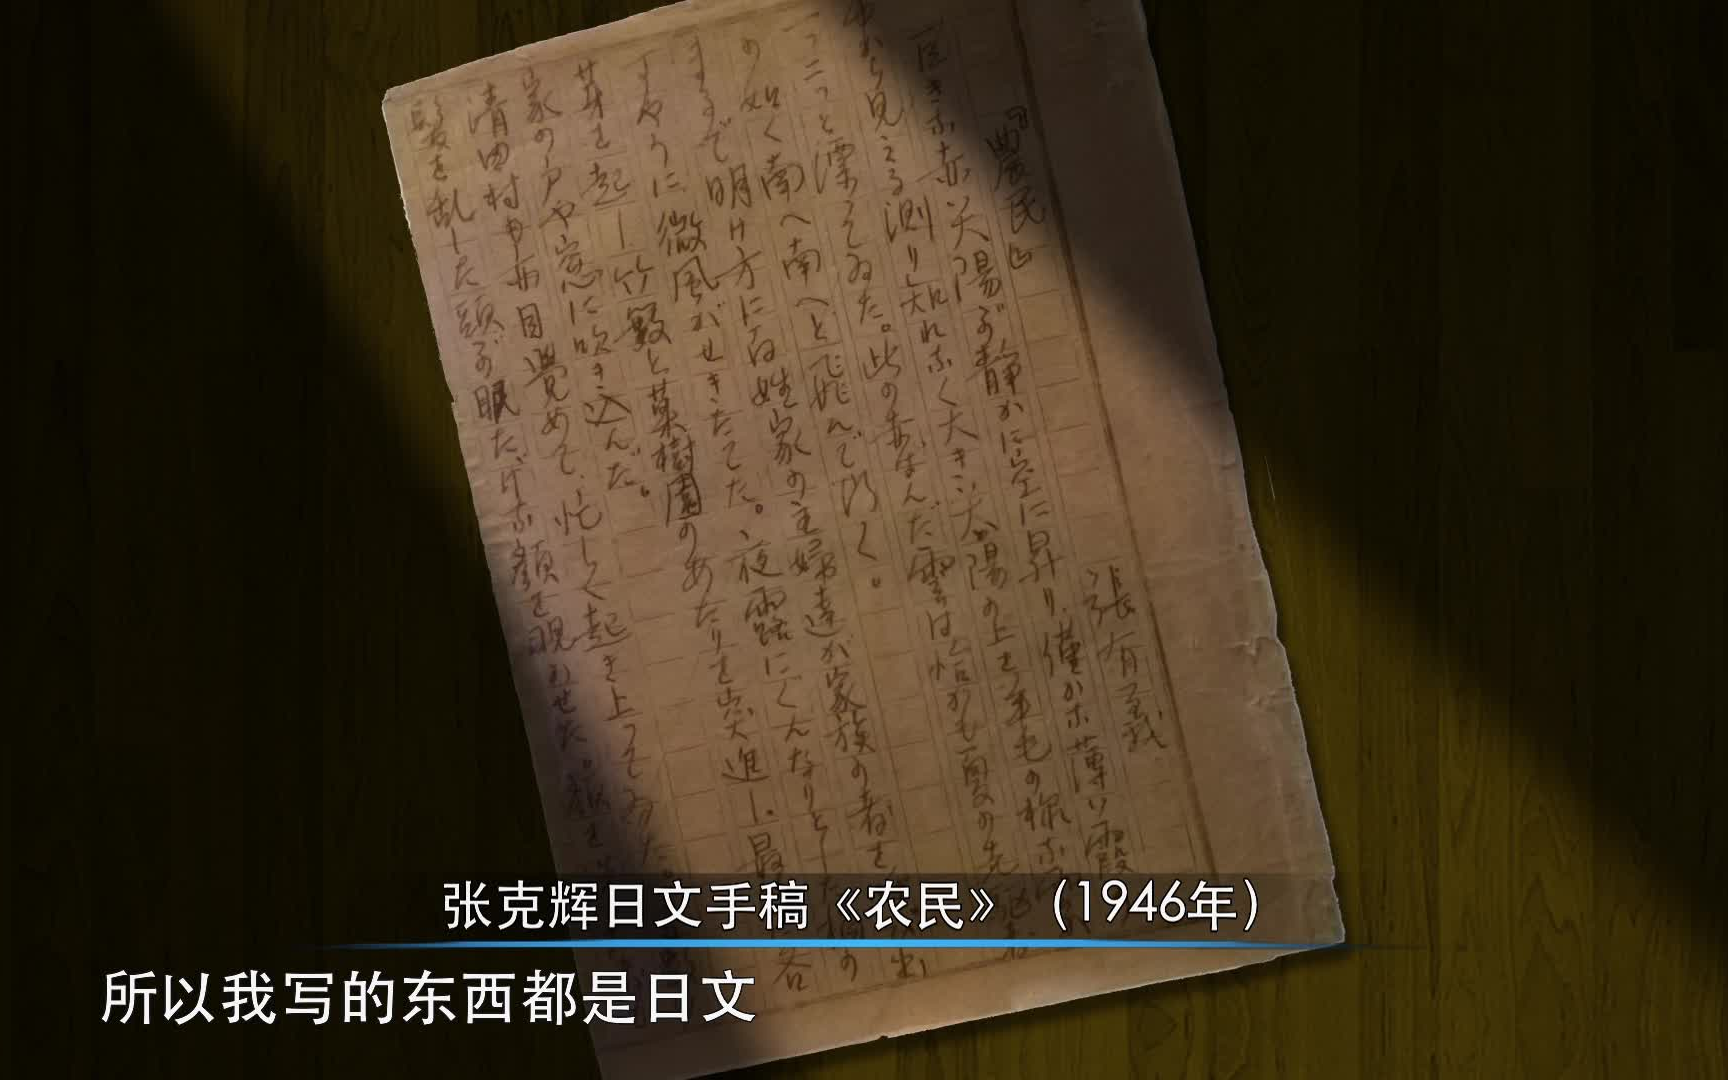 『農民』
張有義
巨きな赤い太陽が静かに空に昇り、僅かな薄い霞
中から見える測り知れなく大きい太陽の上を羊毛の様な
一つ二つと漂えてゐた。此の赤ばんだ雲は恰かも夏の
の如く南へ南へと飛んで行く。
まるで明け方に百姓家の主婦達が家族の者を
すやうに微風がせきたてた。夜露にぐんなりとした稲の
芽を起し、竹藪と菓樹園のあたりを突進し、最 各
家の戸や窓に吹き込んだ。
清田村 目覚めて、忙しく起き上つてゐた。
髪を乱した頭が眠たげな顔を わせた。
张克辉日文手稿《农民》（1946年）
所以我写的东西都是日文